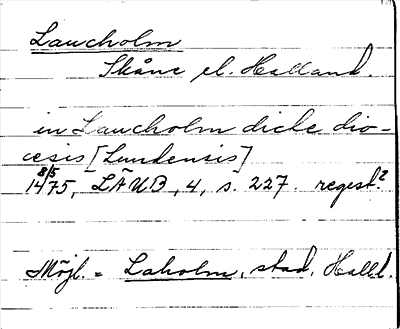 Laucholm
Skåne el. Halland.
in Laucholm dicte dio-
cesis [Lundensis]
8/5
1475, LÄUB, 4, s. 227. regest?
Möjl. = Laholm, stad, Halld.